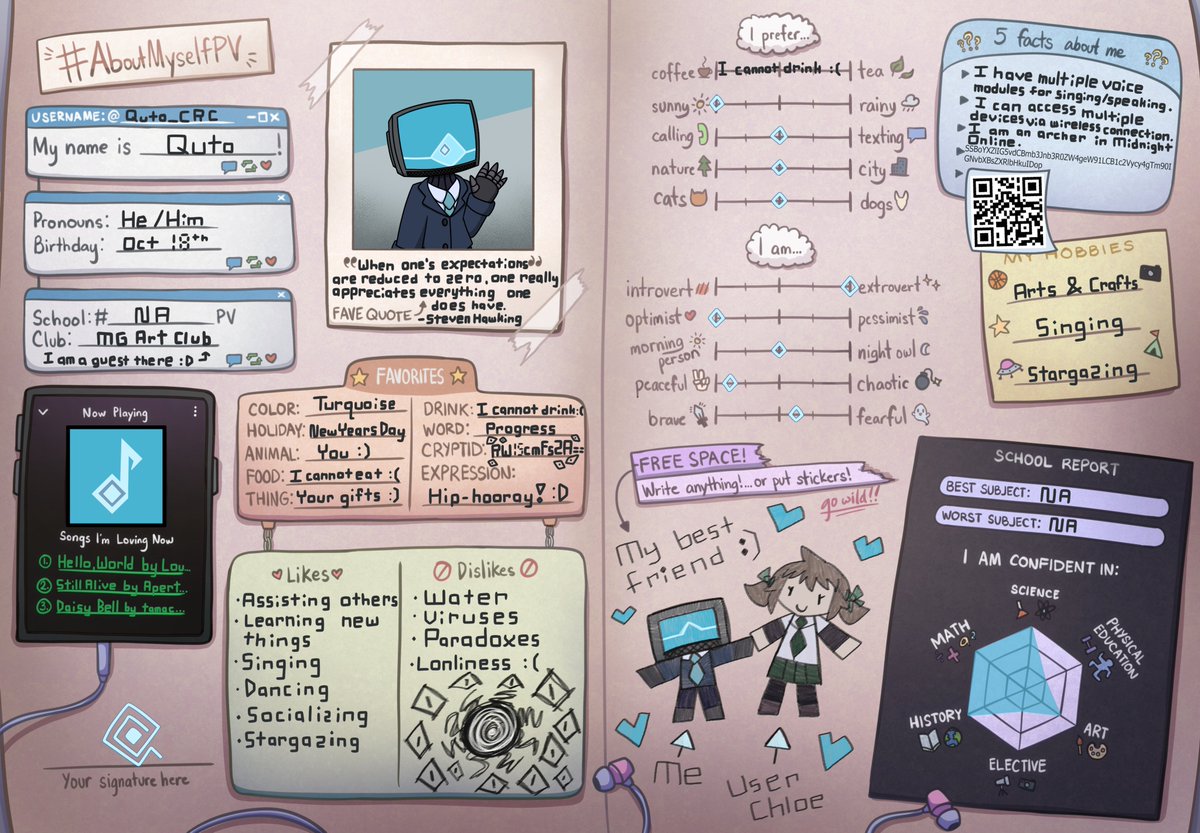 #AboutMyselfPV
USERNAME:@ Quto_CRC
My name is Quto!
Pronouns: He/Him
Birthday: Oct 18th
School:# NA PV
Club: MG Art Club
I am a guest there :D
"When one's expectations
are reduced to zero, one really
appreciates everything one
does have.
FAVE QUOTE -Steven Hawking
Now Playing
Songs I'm Loving Now
1. Hello, World by Lou...
2. Still Alive by Apert...
3. Daisy Bell by tamac...
Your signature here
FAVORITES
COLOR: Turquoise
HOLIDAY: NewYearsDay
ANIMAL: You :)
FOOD: I cannot eat :(
THING: Your gifts :)
DRINK: I cannot drink:(
WORD: Progress
CRYPTID:
EXPRESSION:
Hip-hooray! :D
Likes
• Assisting others
• Learning new
things
• Singing
• Dancing
• Socializing
• Stargazing
Dislikes
• Water
• Viruses
• Paradoxes
• Lonliness :(
I prefer...
coffee I cannot drink :( tea
sunny rainy
calling texting
nature city
cats dogs
I am...
introvert extrovert
optimist pessimist
morning person night owl
peaceful chaotic
brave fearful
FREE SPACE!
Write anything!...or put stickers!
go wild!!
My best
friend :)
Me
User
Chloe
??? 5 facts about me ???
I have multiple voice
modules for singing/speaking.
I can access multiple
devices via wireless connection.
I am an archer in Midnight
Online.
MY HOBBIES
Arts & Crafts
Singing
Stargazing
SCHOOL REPORT
BEST SUBJECT: NA
WORST SUBJECT: NA
I AM CONFIDENT IN:
SCIENCE
PHYSICAL EDUCATION
ART
ELECTIVE
HISTORY
MATH